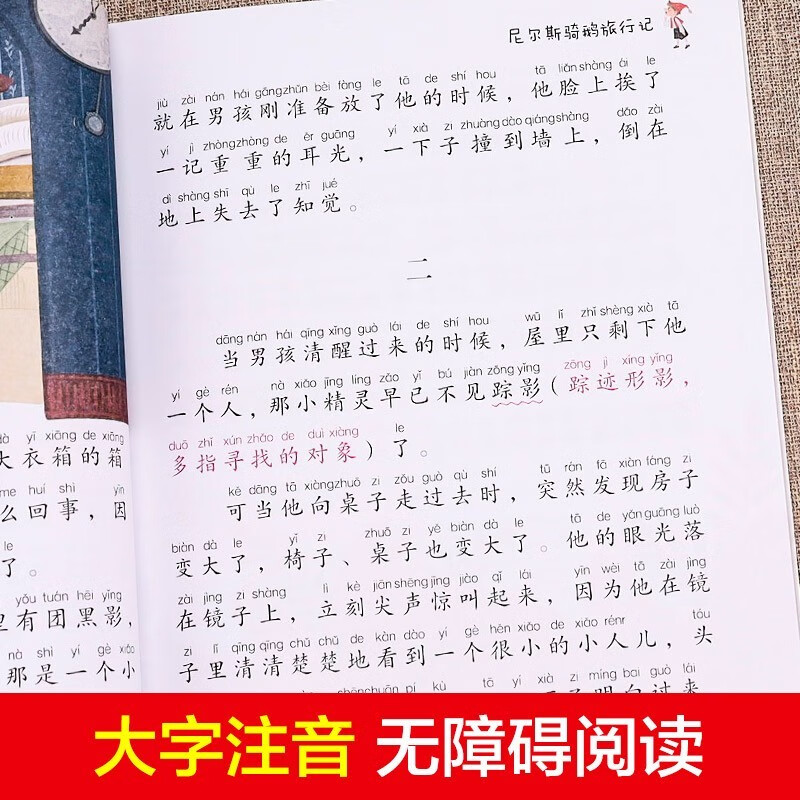 尼尔斯骑鹅旅行记
jiù zài nán hái gāng zhǔn bèi fàng le tā de shí hou tā liǎn shàng ái le
就在男孩刚准备放了他的时候，他脸上挨了
yí jì zhòng zhòng de ěr guāng yí xià zi zhuàng dào qiáng shàng dǎo zài
一记重重的耳光，一下子撞到墙上，倒在
dì shàng shī qù le zhī jué
地上失去了知觉。
二
dāng nán hái qīng xǐng guò lái de shí hou wū lǐ zhǐ shèng xià tā
当男孩清醒过来的时候，屋里只剩下他
yí gè rén nà xiǎo jīng líng zǎo yǐ bú jiàn zōng yǐng zōng jì xíng yǐng
一个人，那小精灵早已不见踪影（踪迹形影，
duō zhǐ xún zhǎo de duì xiàng le
多指寻找的对象）了。
kě dāng tā xiàng zhuō zi zǒu guò qù shí tū rán fā xiàn fáng zi
可当他向桌子走过去时，突然发现房子
biàn dà le yǐ zi zhuō zi yě biàn dà le tā de yǎn guāng luò
变大了，椅子、桌子也变大了。他的眼光落
zài jìng zi shàng lì kè jiān shēng jīng jiào qǐ lái yīn wèi tā zài jìng
在镜子上，立刻尖声惊叫起来，因为他在镜
zi lǐ qīng qīng chǔ chǔ de kàn dào yí gè hěn xiǎo de xiǎo rénr tóu
子里清清楚楚地看到一个很小的小人儿，头
shēn chuān pí kù tā yí xià zi míng bai guò lái
dà yī xiāng de xiāng
大衣箱的箱
me huí shì yīn
么回事，因
le
了。
yǒu tuán hēi yǐng
里有团黑影，
nà shì yí gè xiǎo
那是一个小
大字注音 无障碍阅读